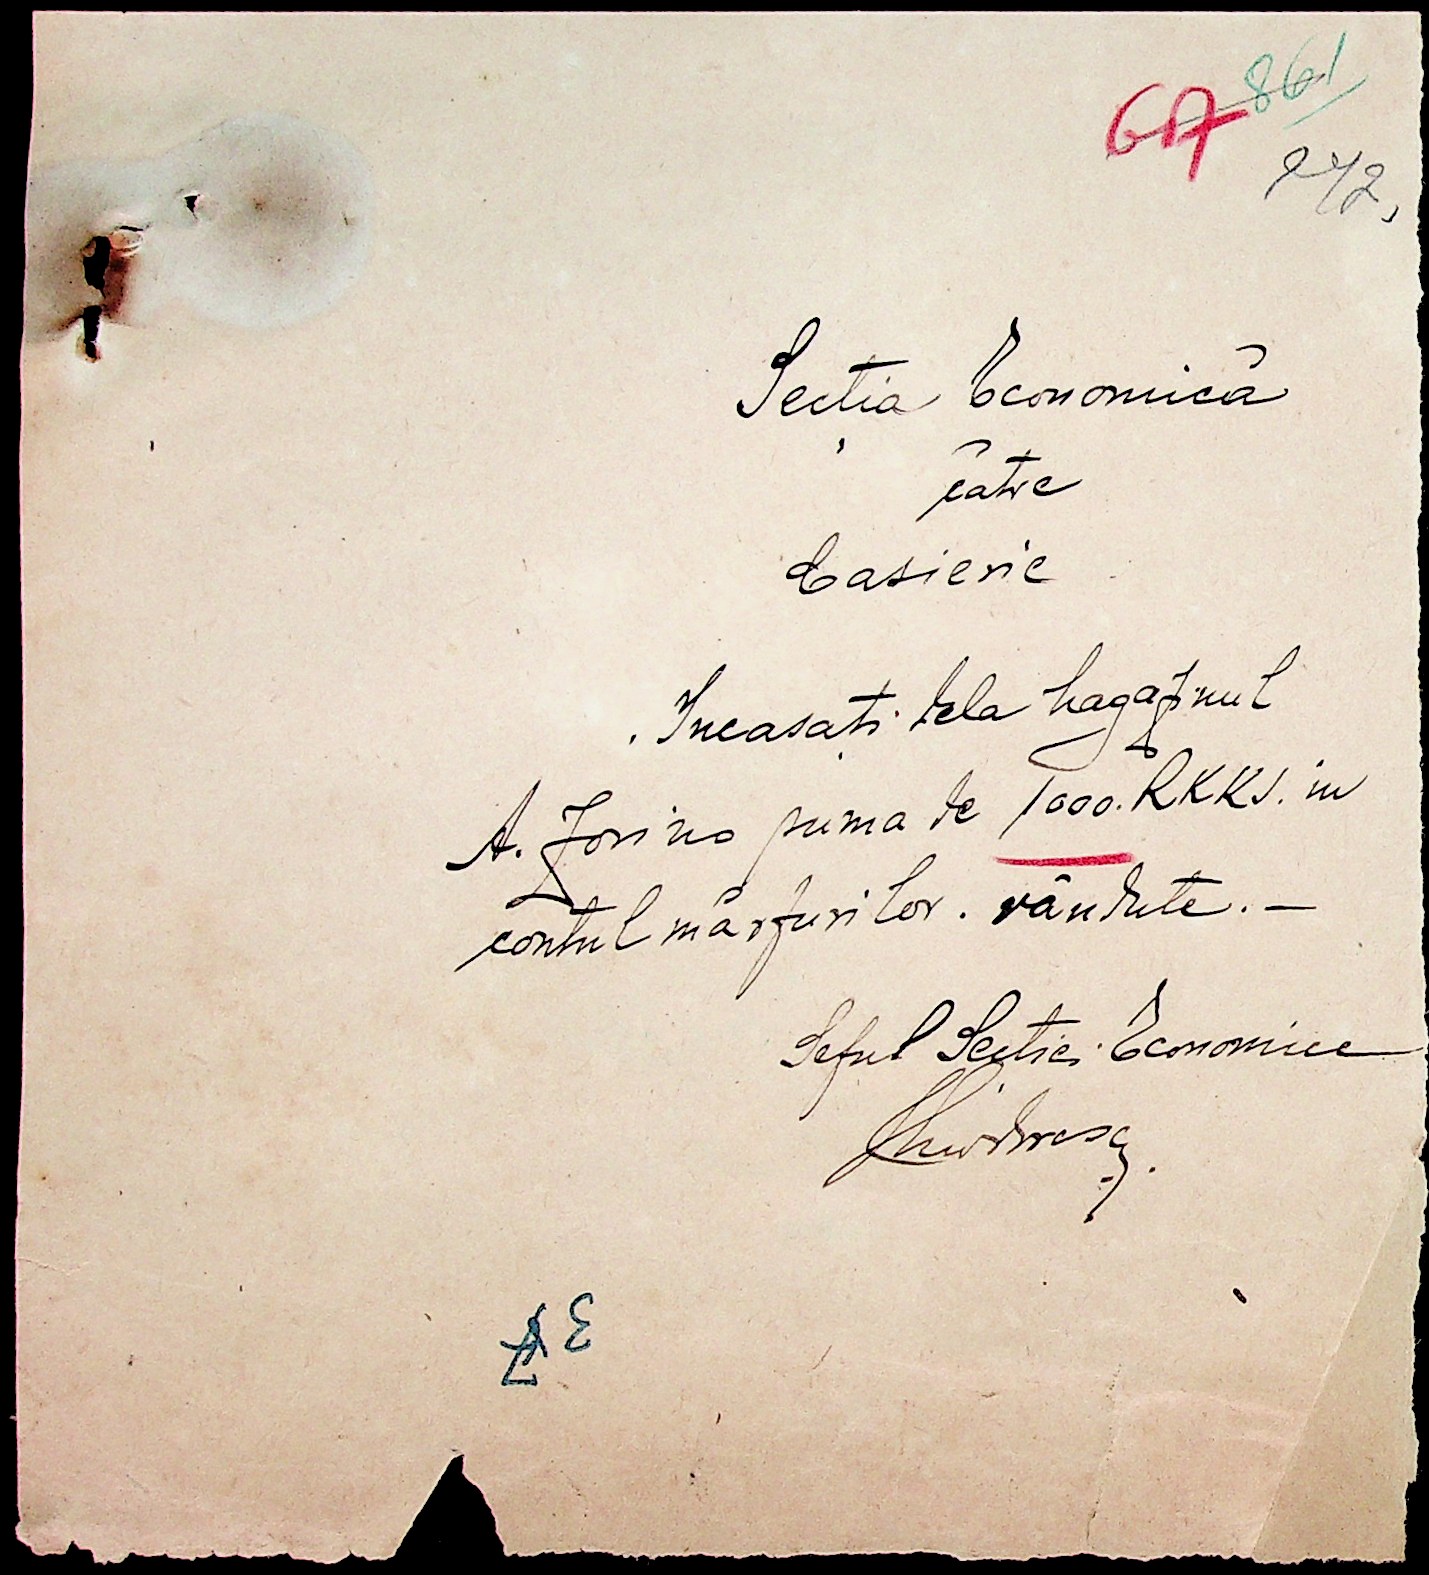 861
67
242,
Secția Economică
către
Casierie
Incasați dela Magazinul
A. Jorino suma de 1000. RKKS. in
contul mărfurilor. vândute. —
Seful Secției Economice